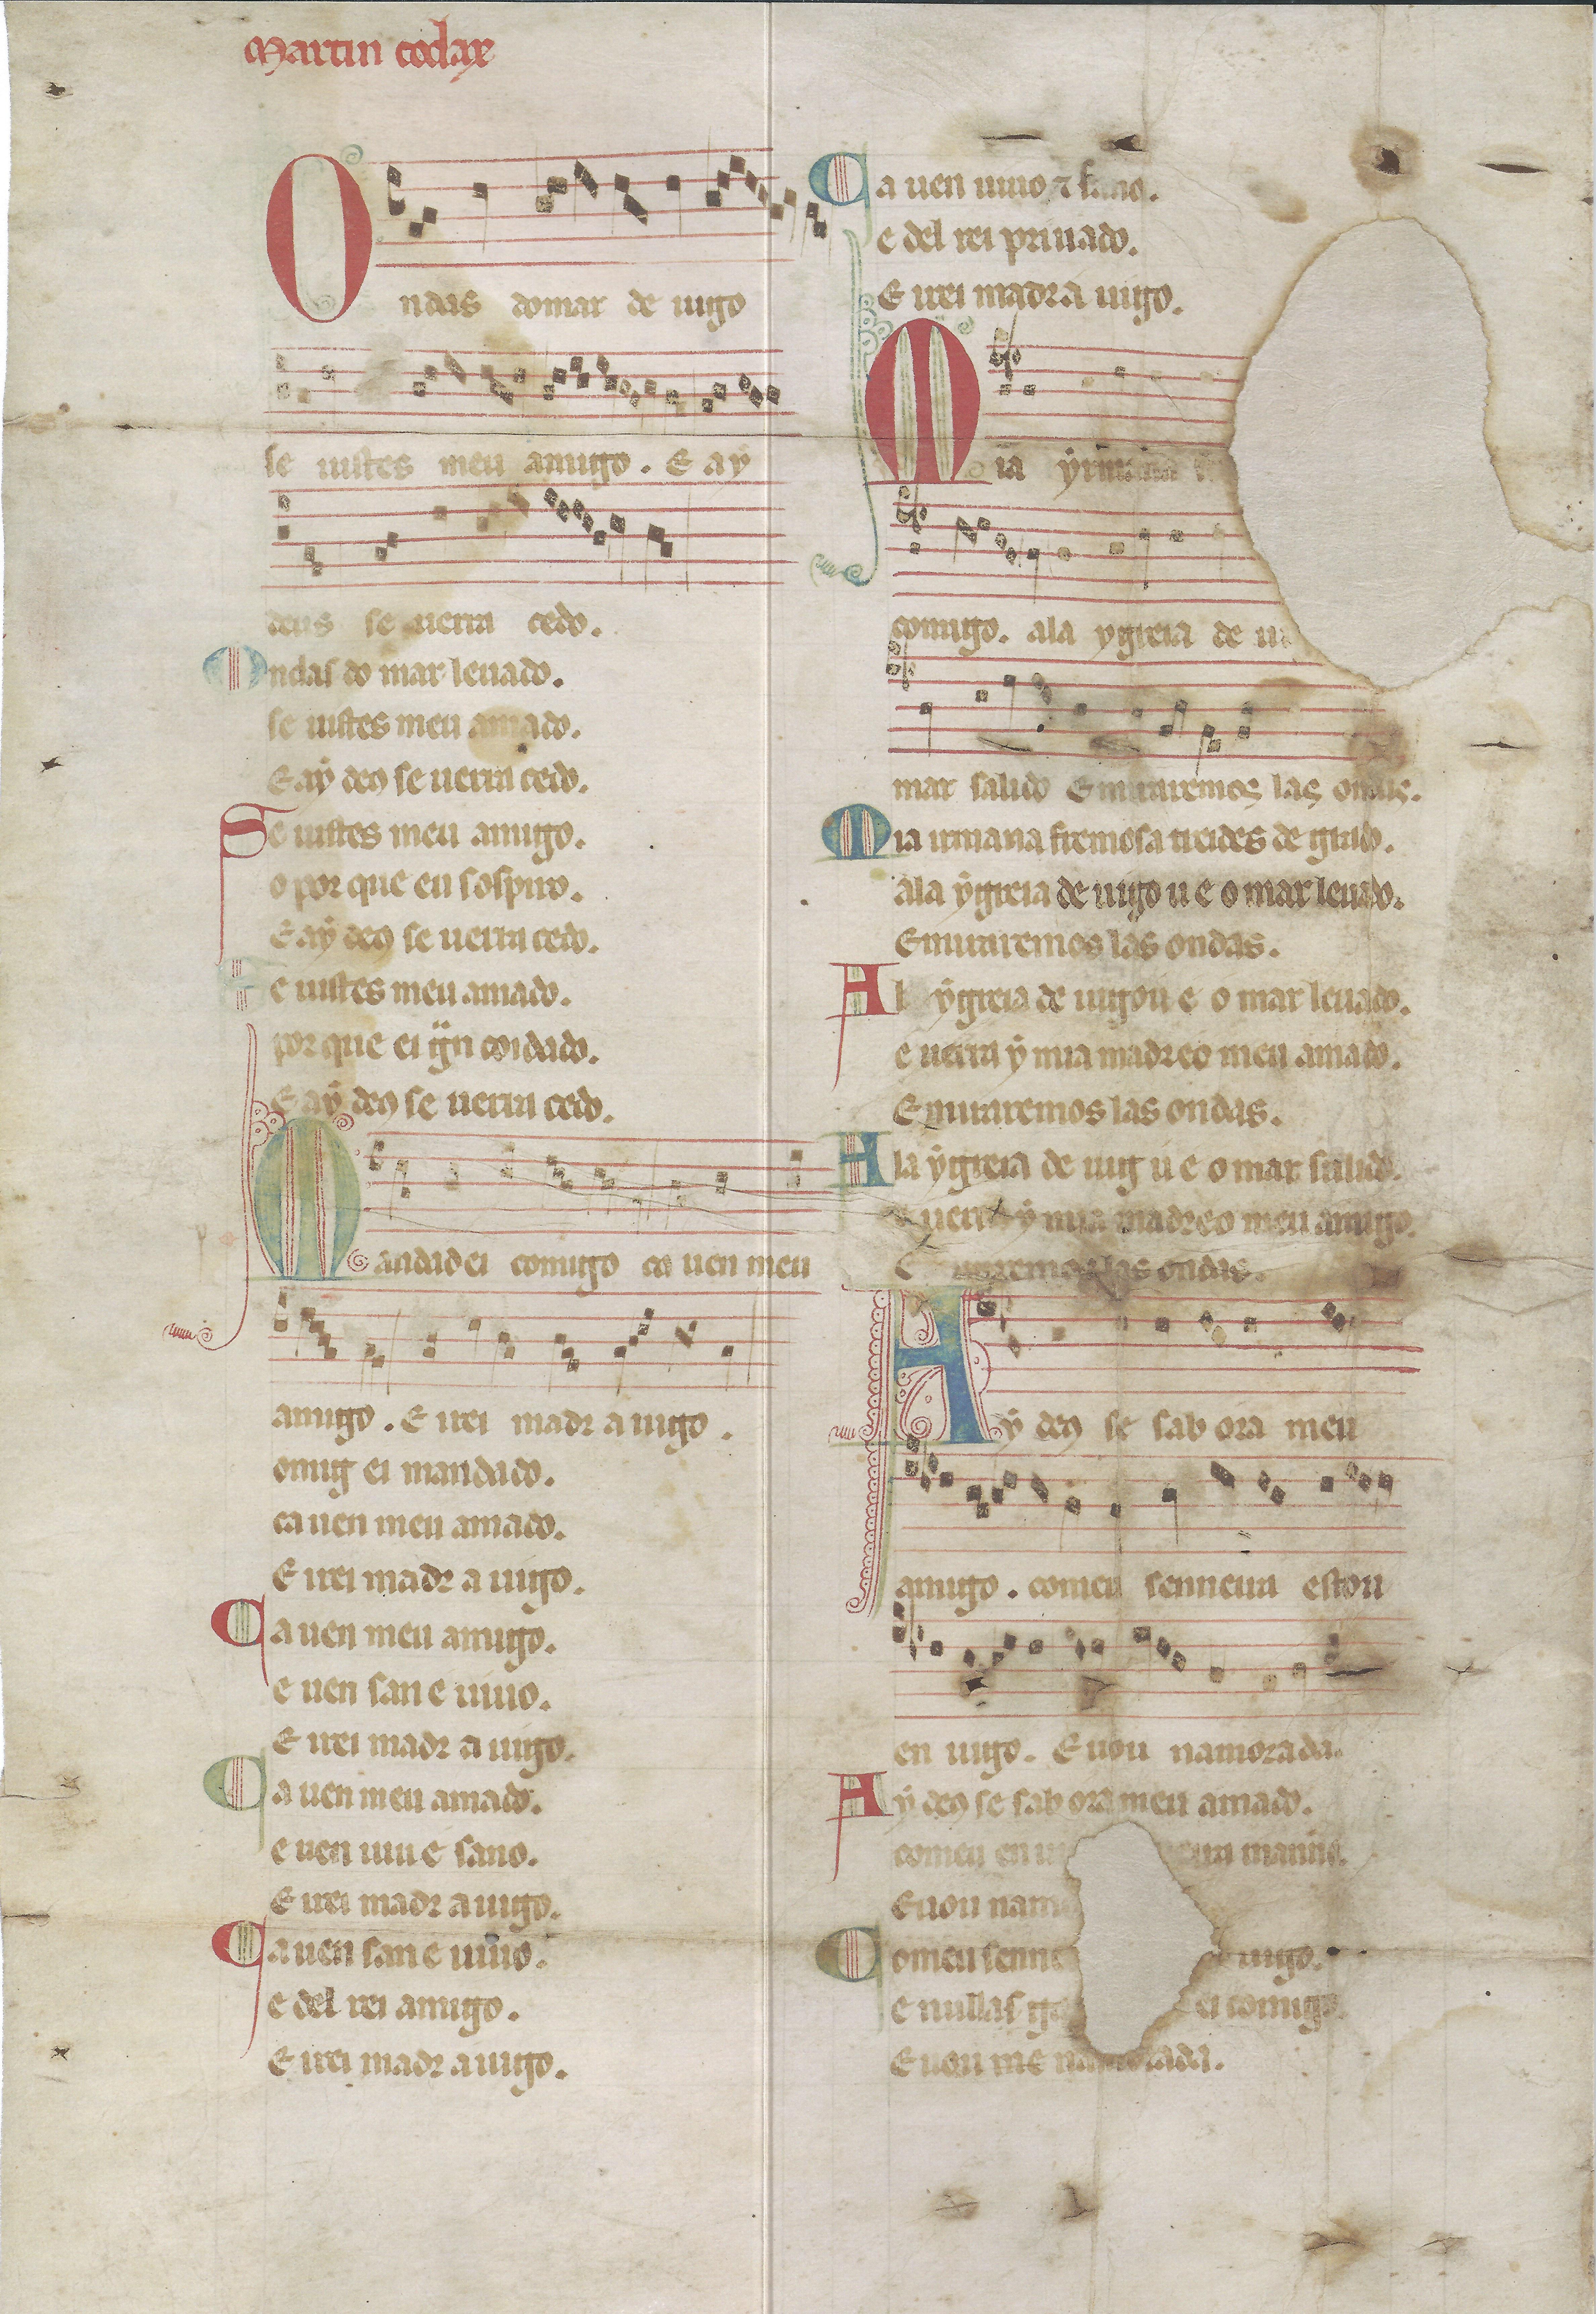 Martin codax
Ondas domar de uigo
se uistes meu amigo. E ay
deus se uerra cedo.
Ondas do mar leuado.
se uistes meu amado.
E aẏ deꝯ se uerra cedo.
Se uistes meu amigo.
o por que eu sospiro.
E aẏ deꝯ se uerra cedo.
Se uistes meu amado.
por que ei coidado.
E aẏ deꝯ se uerra cedo.
Mandad ei comigo ca uen meu
amigo. E irei madr a uigo.
omig ei mandado.
ca uen meu amado.
E irei madr a uigo.
Ca uen meu amigo.
e uen san e uiuo.
E irei madr a uigo.
Ca uen meu amado.
e uen uiu e sano.
E irei madr a uigo.
Ca uen san e uiuo.
e del rei amigo.
E irei madr a uigo.
Ca uen uiuo ⁊ sano.
e del rei priuado.
E irei madr a uigo.
Mia ẏrmana
comigo. ala ygreia de
mar salido E miraremos las ondas.
Mia irmana fremosa treides de grado.
ala ẏgreia de uigo u e o mar leuado.
E miraremos las ondas.
Al ẏgreia de uigo u e o mar leuado.
e uerra ẏ mia madre o meu amado.
E miraremos las ondas.
A la ẏgreia de uig u e o mar salido.
e uerra ẏ mia madre o meu amigo.
E miraremos las ondas.
Aẏ deꝯ se sab ora meu
amigo. comeu senneira estou
en uigo. E uou namorada.
Aẏ deꝯ se sab ora meu amado.
comeu en manno.
E uou nam
Comeu senne uigo.
e nullas ga ei comigo.
E uou me namorada.